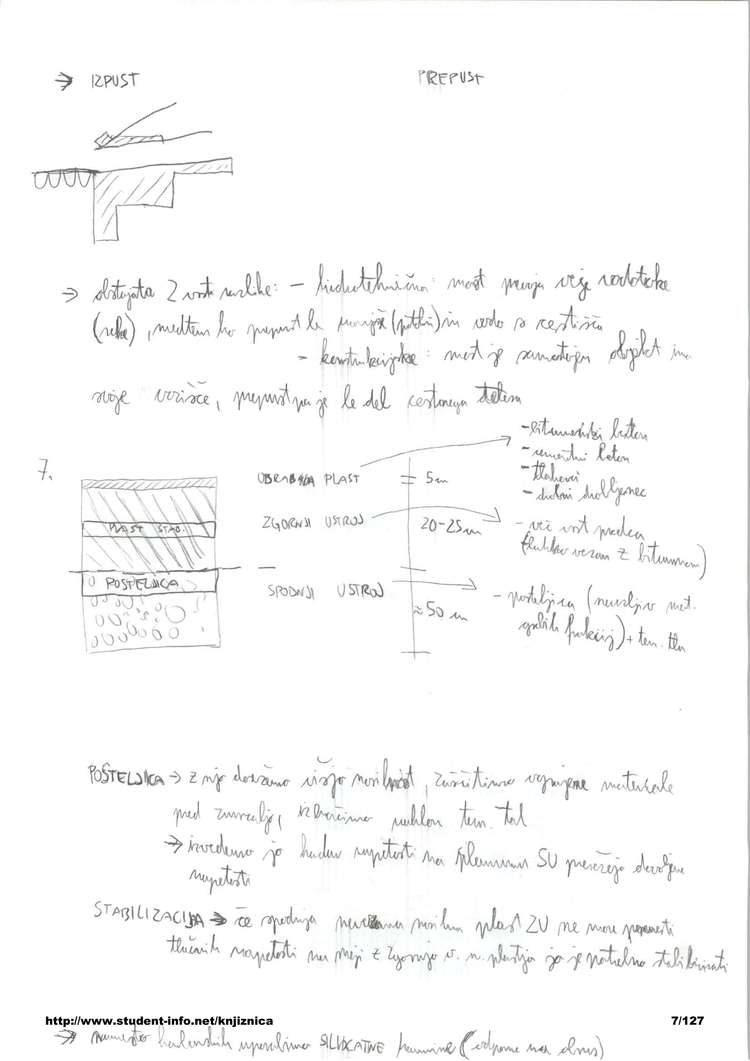 → IZPUST
PREPUST
→ obstajata 2 vrsti razlike: - hidrotehnična: most premošča večje vodotoke
(reke), medtem ko prepust le manjše (potoki) in vodo s cestišča
- konstrukcijske: most je samostojen objekt ima
svoje vozišče, prepust pa je le del cestnega telesa
7.
OBRABNA PLAST
5cm
- bitumenski beton
- cementni beton
- tlakovci
- drobni drobljenec
PLAST STAB.
ZGORNJI USTROJ
20-25cm
- več vrst
(lahko vezan z bitumnom)
POSTELJICA
SPODNJI USTROJ
≈50 cm
- posteljica (neuslj mat.
grobih frakcij) + tem. tla
POSTELJICA → z njo dosežemo višjo nosilnost, zaščitimo vgrajene materiale
pred zmrzaljo, izboljšamo tem. tal
→ izvedemo jo kadar napetosti na planumu SU presežejo dovoljene
napetosti
STABILIZACIJA → če spodnja nevezana nosilna plast ZU ne more prenesti
tlačnih napetosti na meji z zgornjo v. n. plastjo jo je potrebno stabilizirati
http://www.student-info.net/knjiznica
7/127
→ namesto uporabimo SILIKATNE kamnine (odporne na obrus)